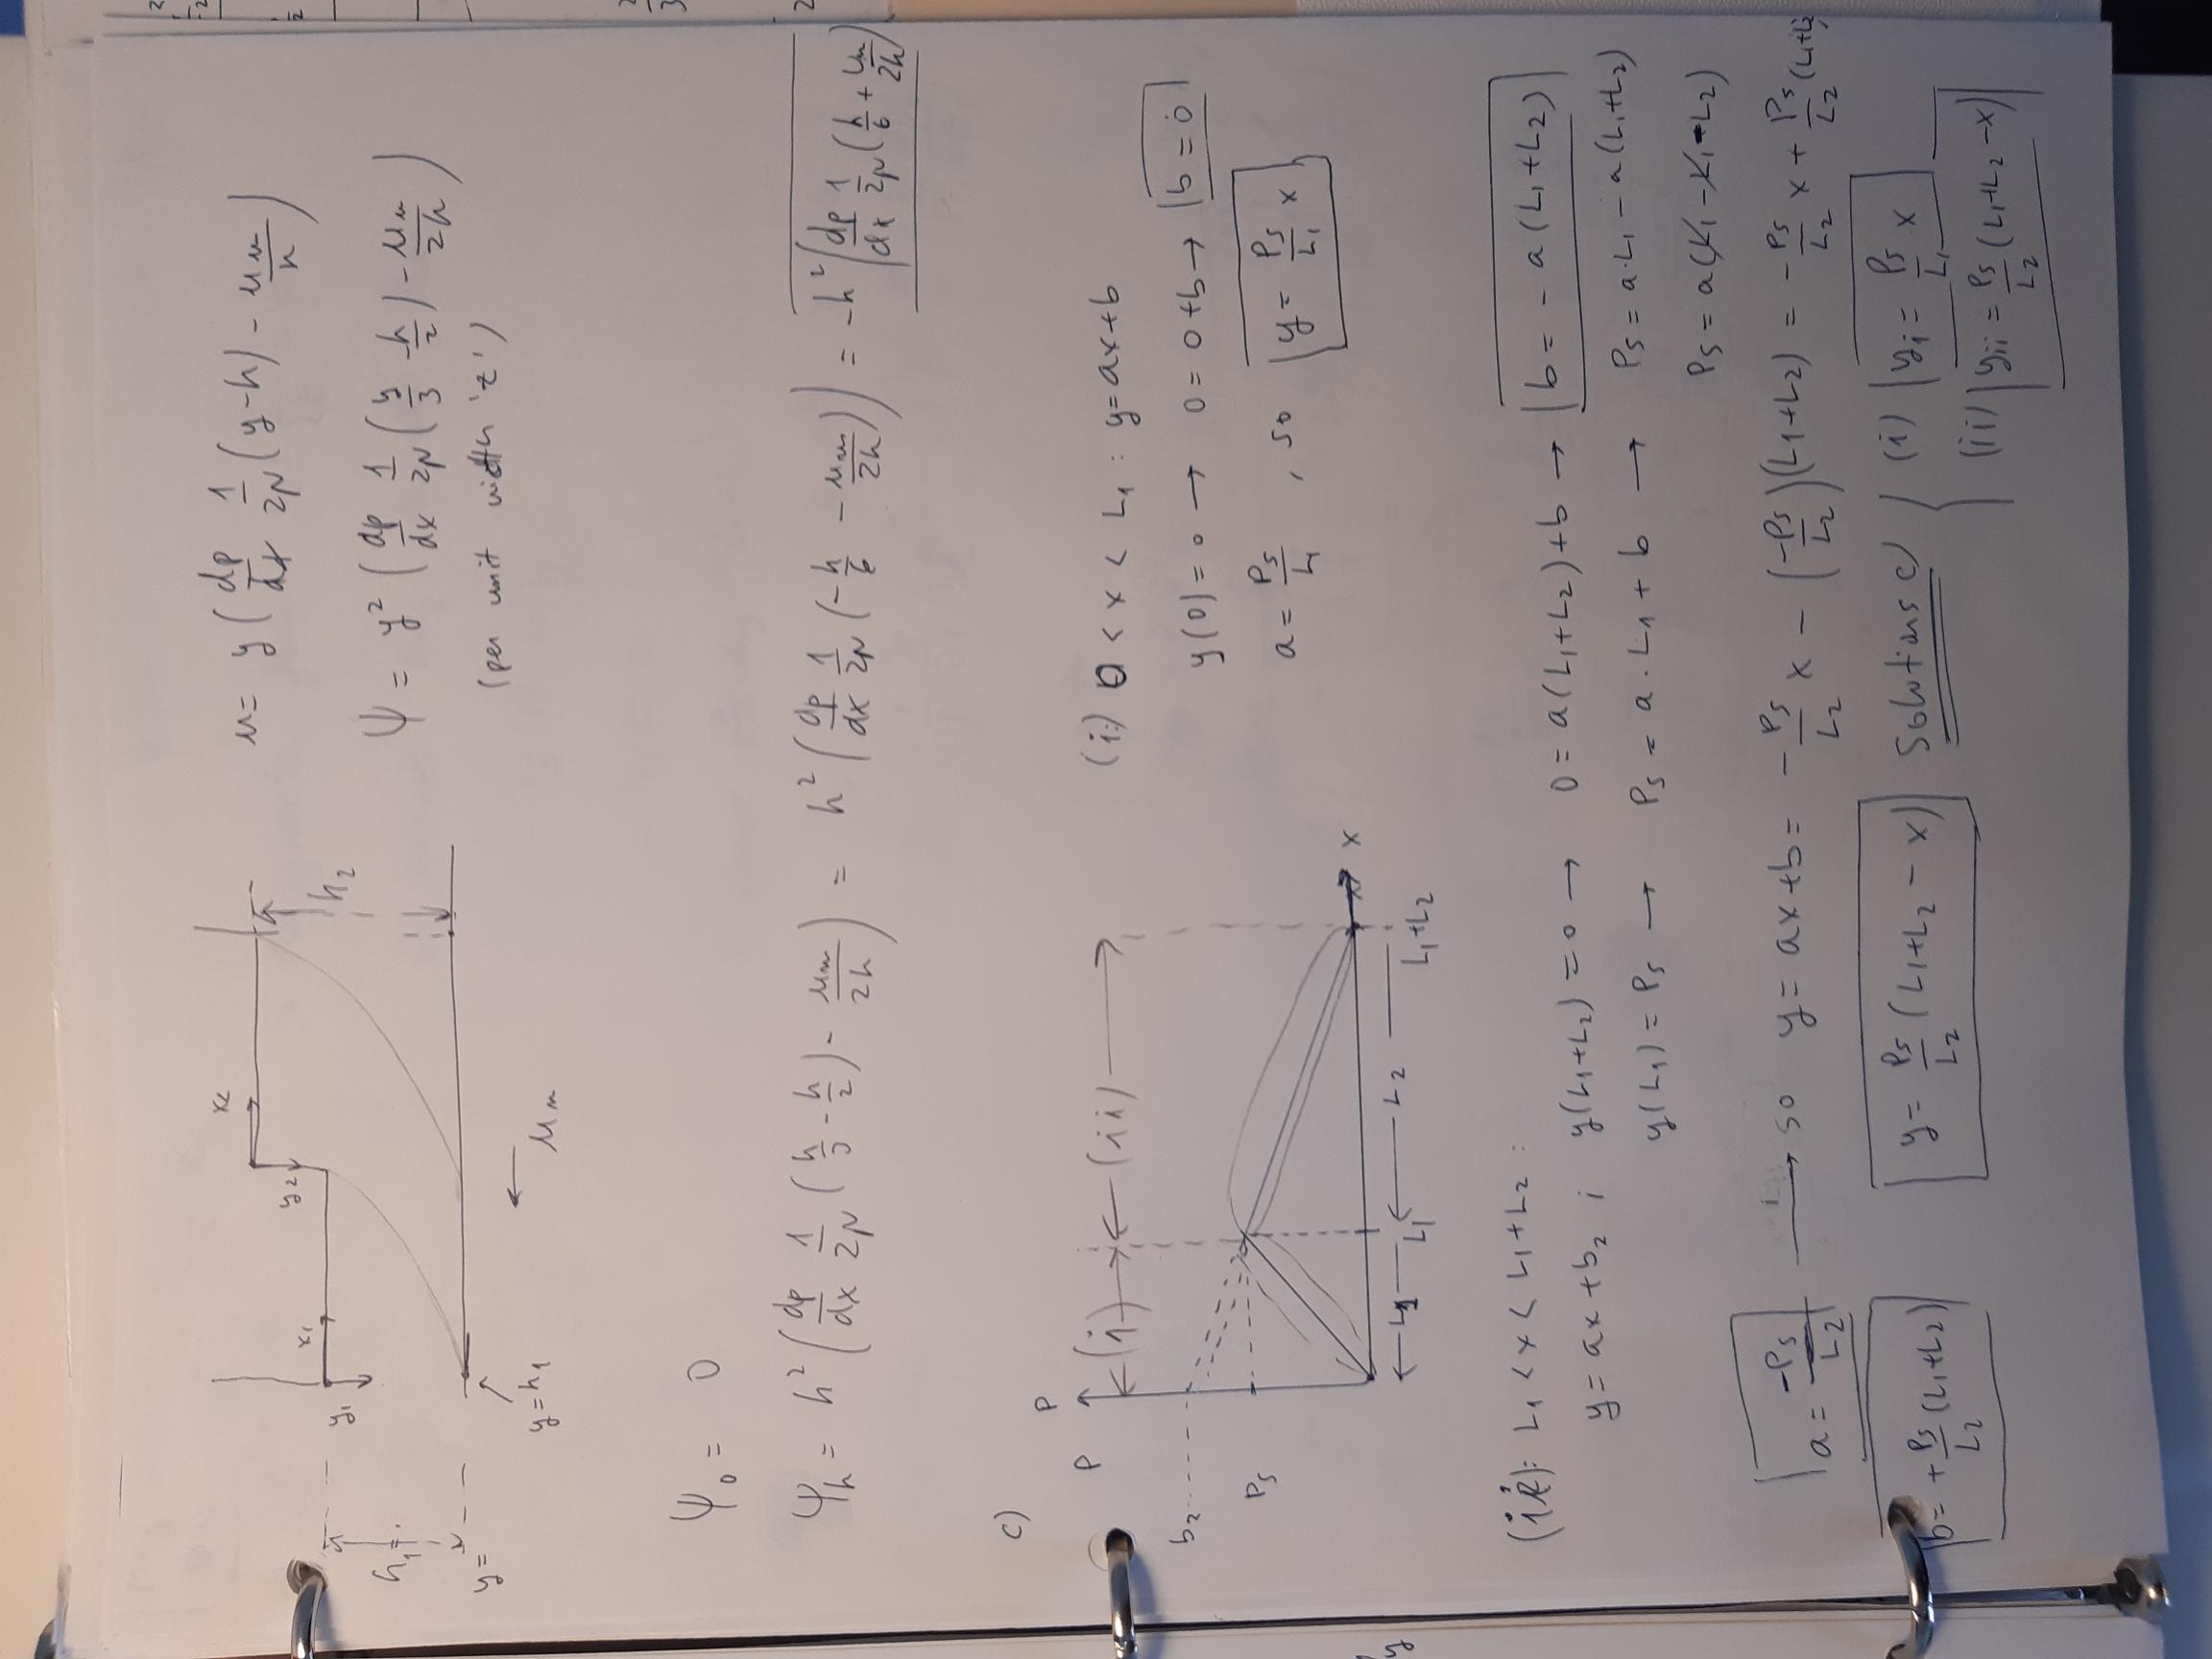 x₂
u = y ( dp/dx 1/2μ (y-h) - u_m/h )
y₂
x₁
y₁
h₂
h₁
ψ = y² ( dp/dx 1/2μ ( y/3 - h/2 ) - u_m/2h )
y=
(per unit width 'z')
y=h₁
← u_m
ψ₀ = 0
ψ_h = h² ( dp/dx 1/2μ ( h/3 - h/2 ) - u_m/2h ) = h² ( dp/dx 1/2μ ( - h/6 - u_m/2h ) ) = -h² ( dp/dx 1/2μ ( h/6 + u_m/2h )
c)
P
P
(i) (ii)
(i:) 0 < x < L₁ : y=ax+b
b₂
y(0)=0 → 0=0+b → b=0
Ps
a = Ps/L₁ , so y = Ps/L₁ x
x
L₁ L₂
L₁ L₁+L₂
(ii): L₁ < x < L₁+L₂ :
y=ax+b₂ ; y(L₁+L₂)=0 → 0=a(L₁+L₂)+b → b = - a(L₁+L₂)
y(L₁) = Ps → Ps = a·L₁ + b → Ps = a·L₁ - a(L₁+L₂)
Ps = a(L₁-L₁-L₂)
a = -Ps/L₂ → so y = ax+b = - Ps/L₂ x - (-Ps/L₂)(L₁+L₂) = - Ps/L₂ x + Ps/L₂ (L₁+L₂
b= + Ps/L₂ (L₁+L₂) y = Ps/L₂ (L₁+L₂ - x) Solutions c) { (i) yi = Ps/L₁ x
(ii) yii = Ps/L₂ (L₁+L₂ - x)